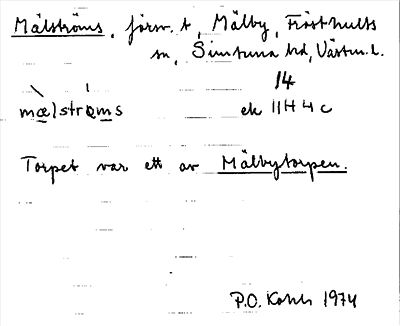 Mälströms, försv. t., Mälby, Frösthults
sn, Simtuna hd, Västm. l.
14
mælstrøms ek 11H4c
Torpet var ett av Mälbytorpen.
P.O. 1974